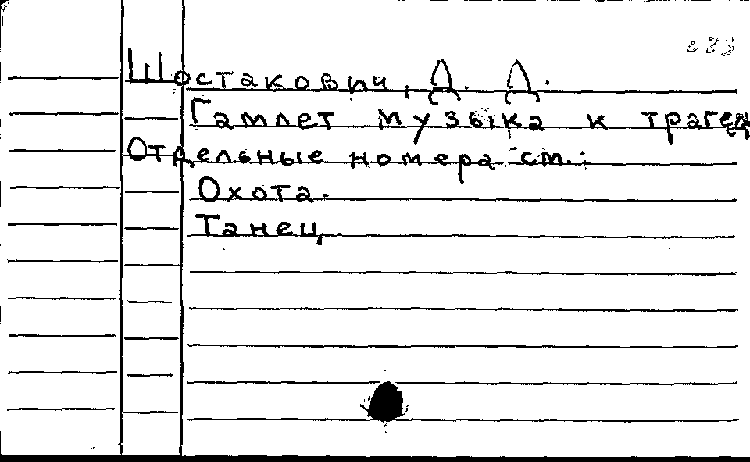 Шостакович, Д. Д.
Гамлет музыка к трагед
Отдельные номера ст.:
Охота.
Танец.